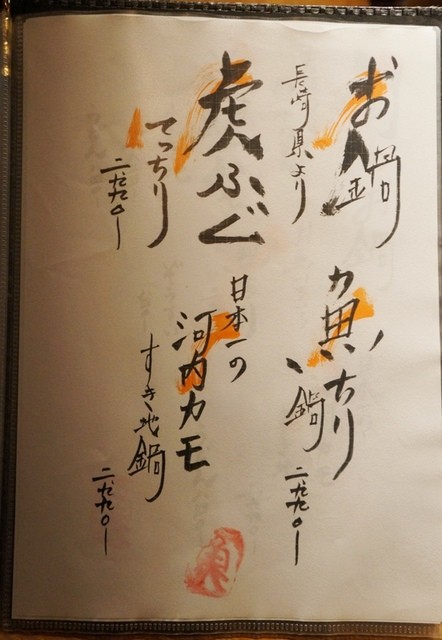 お鍋
長崎県より
虎ふぐ
てっちり
二、九九〇ー
魚ちり
鍋
二、九九〇ー
日本一の
河内カモ
すき地鍋
二、九九〇ー